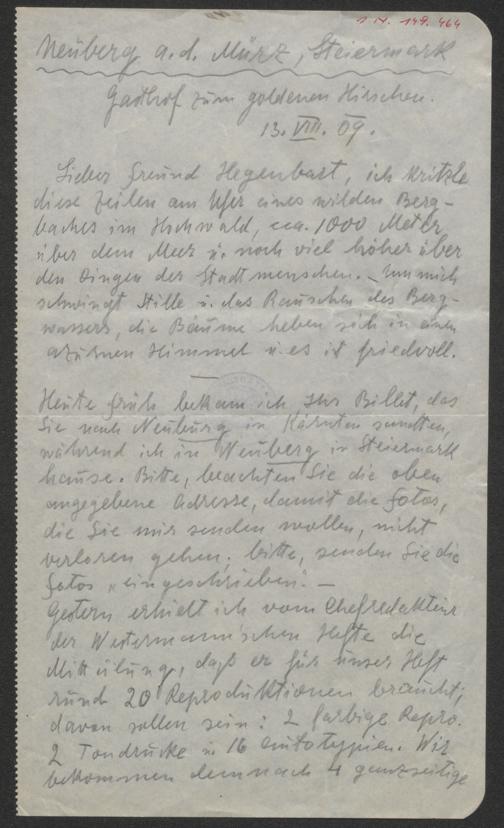 I N. 149.464
Neuberg a. d. Mürz, Steiermark
Gasthof zum goldenen Hirschen.
13. VIII. 09.
Lieber Freund Hegenbart, ich kritzle
diese Zeilen am Ufer eines wilden Berg-
baches im Hochwald, cca. 1000 Meter
über dem Meer u. noch viel höher über
den Dingen der Stadtmenschen. – Um mich
schwingt Stille u. das Rauschen des Berg-
wassers, die Bäume heben sich in einen
azurnen Himmel u. es ist friedvoll.
Heute früh bekam ich Ihr Billet, das
Sie nach Neuburg in Kärnten sandten,
während ich in Neuberg in Steiermark
hause. Bitte, beachten Sie die oben
angegebene Adresse, damit die Fotos,
die Sie mir senden wollen, nicht
verloren gehen; bitte, senden Sie die
Fotos „eingeschrieben“. –
Gestern erhielt ich vom Chefredakteur
der Westermann'schen Hefte die
Mitteilung, daß er für unser Heft
rund 20 Reproduktionen braucht;
davon sollen sein: 2 farbige Repro.
2 Tondrucke u. 16 Autotypien. Wir
bekommen demnach 4 ganzseitige